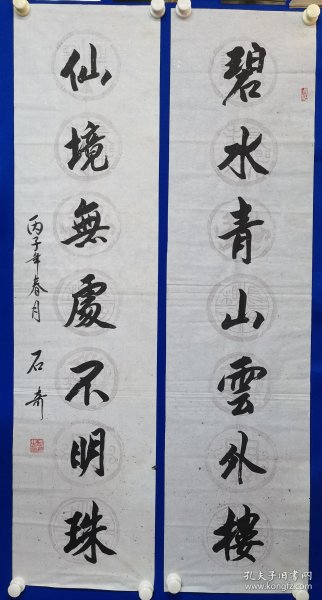 碧水青山雲外樓
仙境無處不明珠
丙子年春月
石奇
孔夫子旧书网
www.kongfz.com